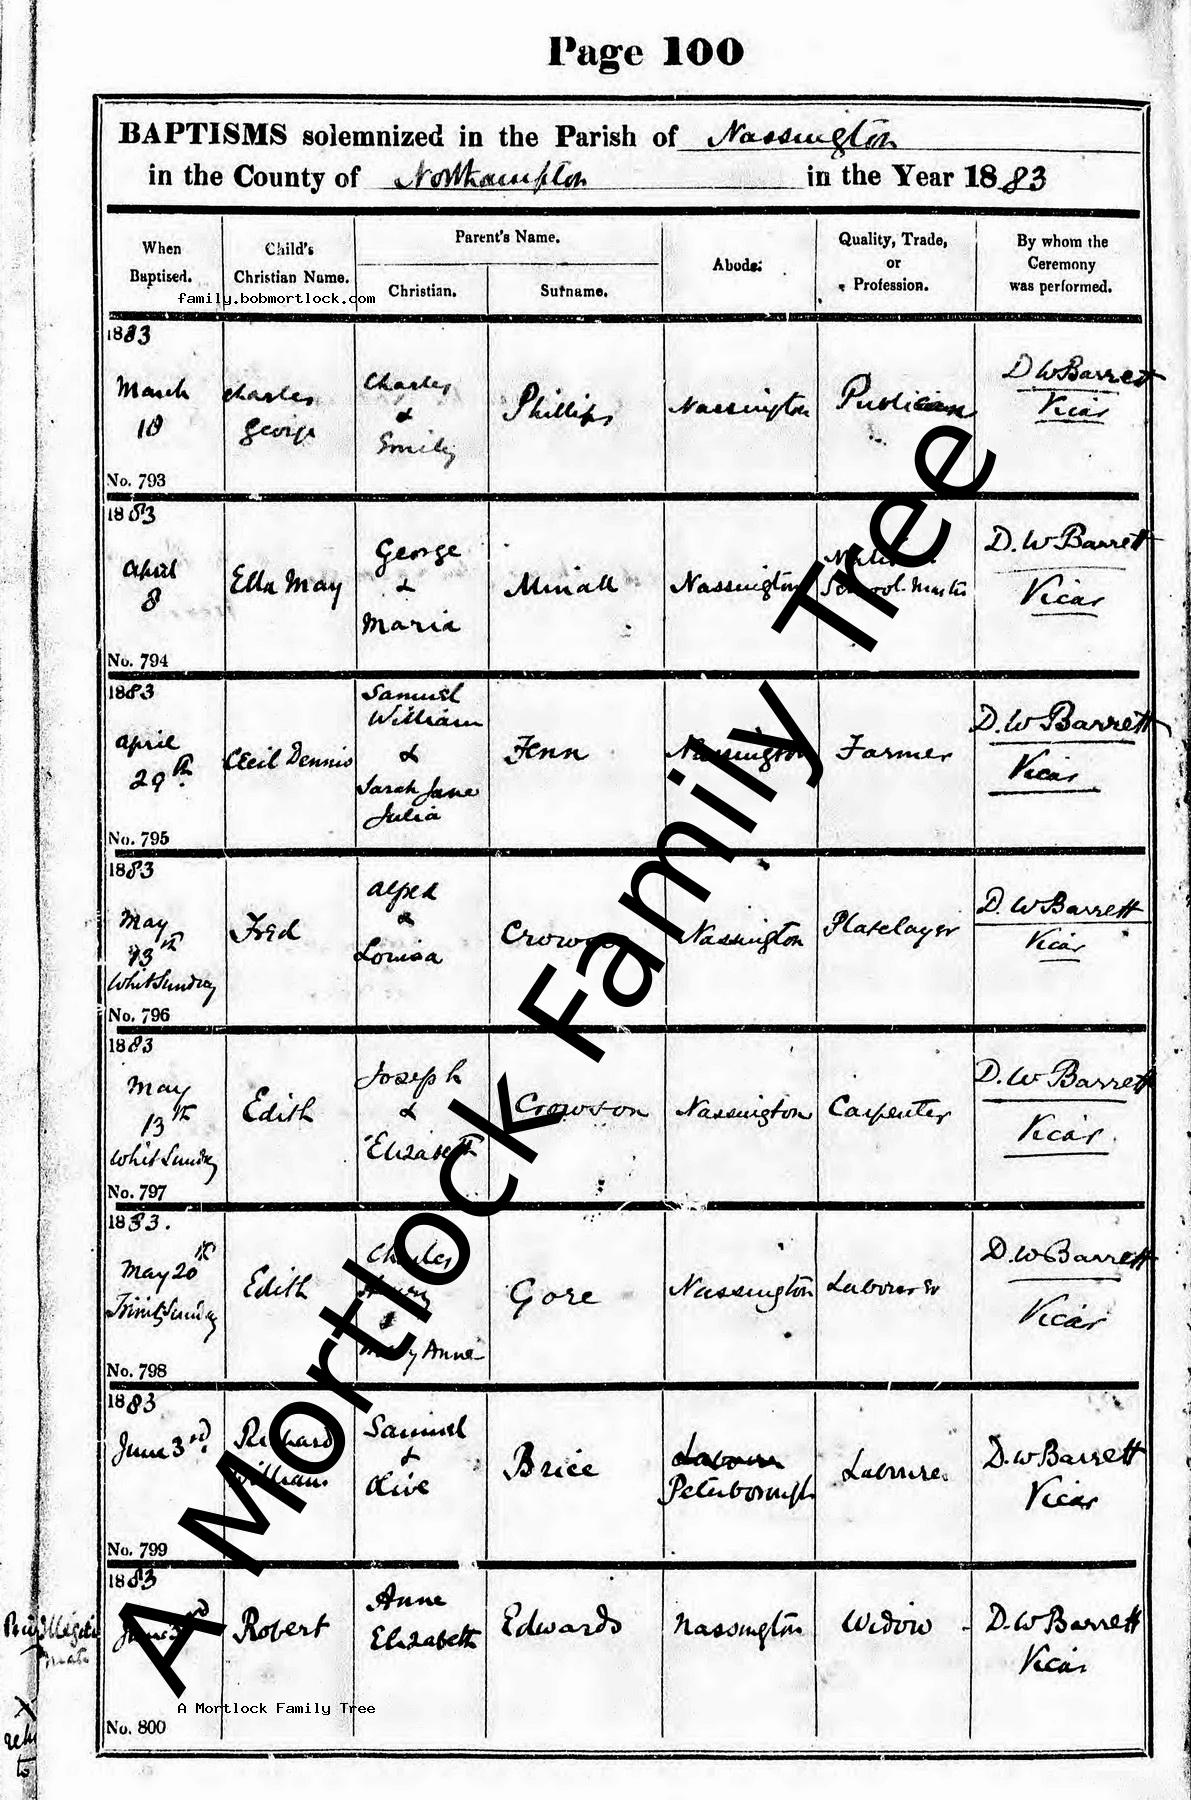 Page 100
BAPTISMS solemnized in the Parish of Nassington
in the County of Northampton in the Year 1883
When Baptised.
Child's Christian Name.
Parent's Name.
Christian.
Surname.
Abode.
Quality, Trade, or Profession.
By whom the Ceremony was performed.
family.bobmortlock.com
1883
March
18
No. 793
Charles
George
Charles
&
Emily
Phillips
Nassington
Publican
D W Barrett
Vicar
1883
April
8
No. 794
Ella May
George
&
Maria
Minall
Nassington
School-Master
D. W Barrett
Vicar
1883
April
29th
No. 795
Cecil Dennis
Samuel
William
&
Sarah Jane
Julia
Fenn
Nassington
Farmer
D. W Barrett
Vicar
1883
May
13th
Whit Sunday
No. 796
Fred
Alfred
&
Louisa
Nassington
Platelayer
D. W Barrett
Vicar
1883
May
13th
Whit Sunday
No. 797
Edith
Joseph
&
Elizabeth
Crowson
Nassington
Carpenter
D. W Barrett
Vicar
1883.
May 20th
Trinity Sunday
No. 798
Edith
Charles
Henry
&
Mary Anne
Gore
Nassington
Labourer
D. W Barrett
Vicar
1883
June 3rd.
No. 799
Richard
William
Samuel
&
Olive
Brice
Labourer
Peterborough
Labourer
D. W Barrett
Vicar
1883
June 3rd
No. 800
Robert
Anne
Elizabeth
Edwards
Nassington
Widow
D. W Barrett
Vicar
A Mortlock Family Tree
A Mortlock Family Tree